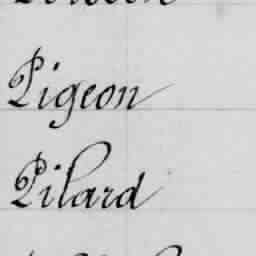 Pigeon
Pilard